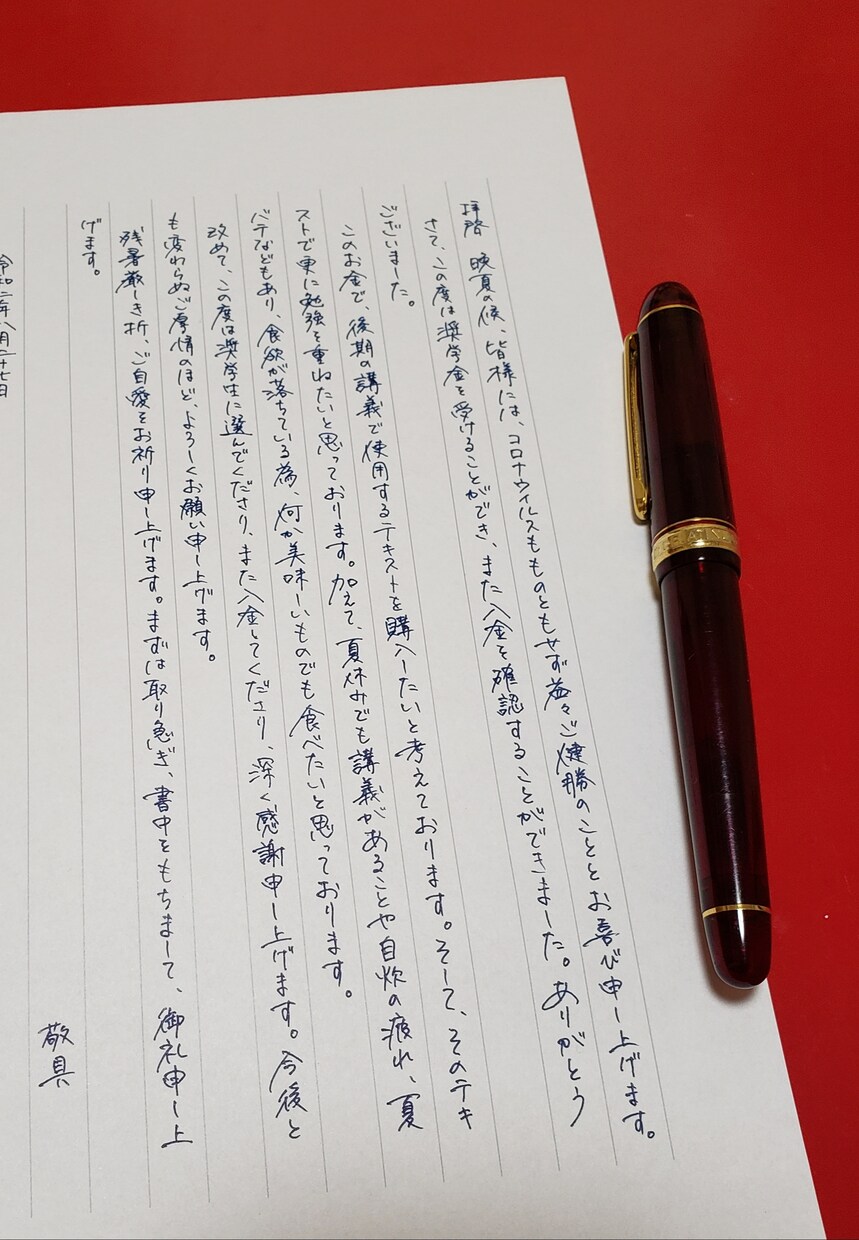 拝啓 晩夏の候、皆様には、コロナウイルスもものともせず益々ご健勝のこととお喜び申し上げます。
さて、この度は奨学金を受けることができ、また入金を確認することができました。ありがとう
ございました。
このお金で、後期の講義で使用するテキストを購入したいと考えております。そして、そのテキ
ストで更に勉強を重ねたいと思っております。加えて、夏休みでも講義があることや自炊の疲れ、夏
バテなどもあり、食欲が落ちている為、何か美味しいものでも食べたいと思っております。
改めて、この度は奨学生に選んでくださり、また入金してくださり、深く感謝申し上げます。今後と
も変わらぬご厚情のほど、よろしくお願い申し上げます。
残暑厳しき折、ご自愛をお祈り申し上げます。まずは取り急ぎ、書中をもちまして、御礼申し上
げます。
敬具
令和二年八月二十七日